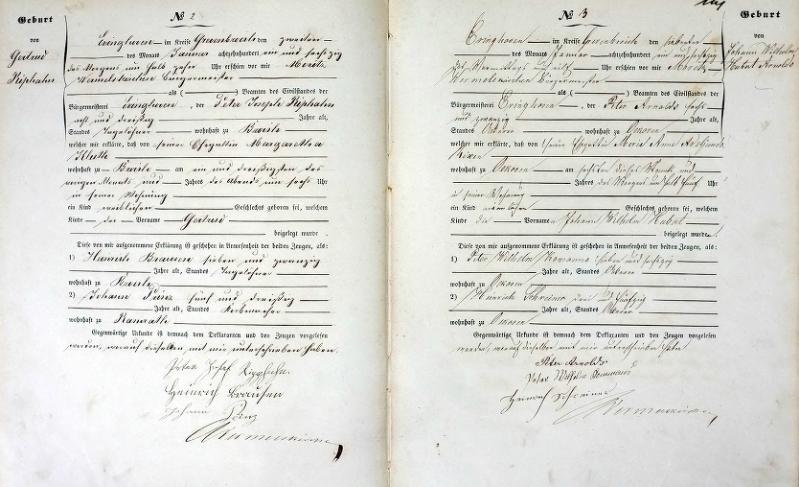 Geburt
von
Gertrud
Ripphahn
№ 2
Elinghoven im Kreise Grevenbroich den zweiten
des Monats Januar achtzehnhundert ein und sechszig
des Morgens um halb zehn Uhr erschien vor mir Moritz
Bürgermeister
als ( ) Beamten des Civilstandes der
Bürgermeisterei der Peter Joseph Ripphahn
acht und dreißig Jahre alt,
Standes Tagelöhner wohnhaft zu
welcher mir erklärte, daß von seiner Ehegattin Margaretha
Kluth
wohnhaft zu am ein und dreißigsten des
vorigen Monats und Jahres des Abends um sechs Uhr
in seiner Wohnung
ein weiblichen Geschlechts geboren sei, welchem
Kinde der Vorname Gertrud
beigelegt wurde
Diese von mir aufgenommene Erklärung ist geschehen in Anwesenheit der beiden Zeugen, als:
1) Heinrich Brausen sieben und zwanzig
Jahre alt, Standes Tagelöhner
wohnhaft zu
2) Johann fünf und dreißig
Jahre alt, Standes
wohnhaft zu
Gegenwärtige Urkunde ist demnach dem Deklaranten und den Zeugen vorgelesen
worden, worauf dieselben mit mir unterschrieben haben.
Peter Josef Ripphahn
Heinrich Brausen
Johann
№ 3
im Kreise Grevenbroich den siebenten
des Monats Januar achtzehnhundert ein und sechszig
des Vormittags Uhr erschien vor mir Moritz
Bürgermeister
als ( ) Beamten des Civilstandes der
Bürgermeisterei der Peter Arnolds sechs
und zwanzig Jahre alt,
Standes Ackerer wohnhaft zu
welcher mir erklärte, daß von seiner Ehegattin Maria Anna
wohnhaft zu am sechsten dieses Monats und
Jahres des Morgens um halb fünf Uhr
in seiner Wohnung
ein männlichen Geschlechts geboren sei, welchem
Kinde die Vornamen Johann Wilhelm Hubert
beigelegt wurden
Diese von mir aufgenommene Erklärung ist geschehen in Anwesenheit der beiden Zeugen, als:
1) Peter Wilhelm sieben und sechszig
Jahre alt, Standes Ackerer
wohnhaft zu
2) Heinrich Schreiner zwei und fünfzig
Jahre alt, Standes Ackerer
wohnhaft zu
Gegenwärtige Urkunde ist demnach dem Deklaranten und den Zeugen vorgelesen
worden, worauf dieselben mit mir unterschrieben haben
Peter Arnolds
Peter Wilhelm
Heinrich Schreiner
Geburt
von
Johann Wilhelm
Hubert Arnolds